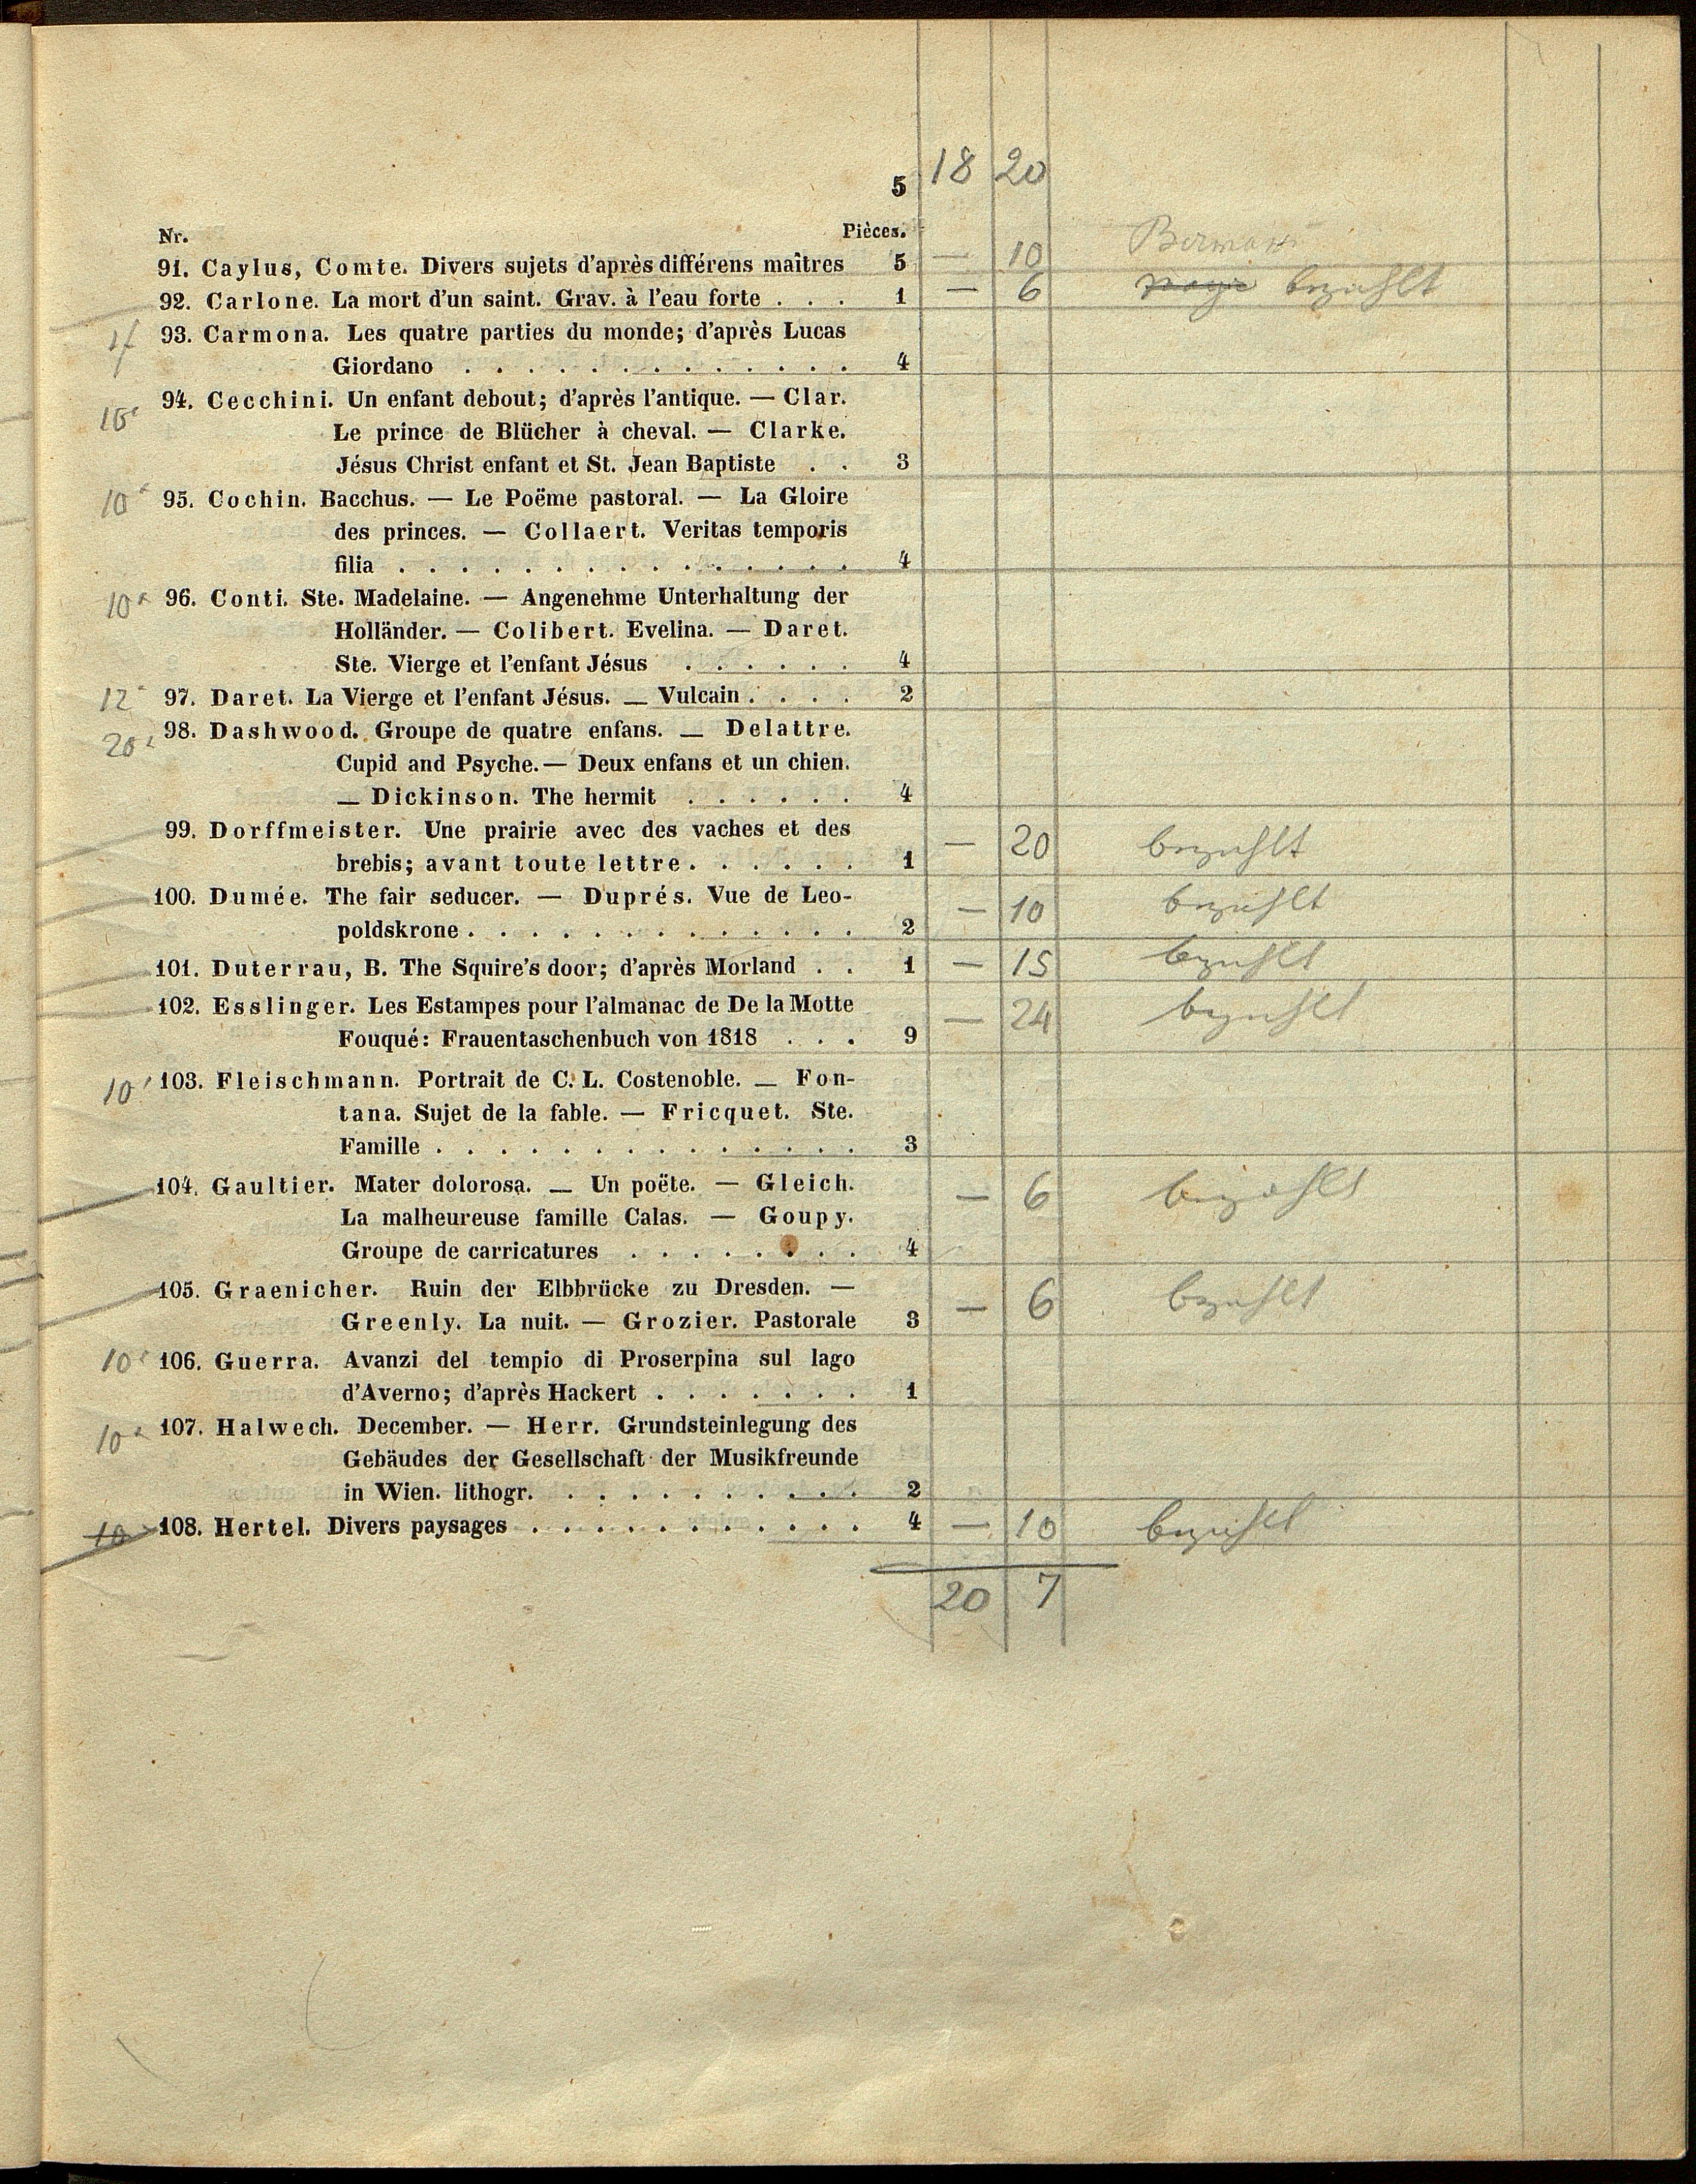 5 18 20
Nr. Pièces.
91. Caylus, Comte. Divers sujets d'après différens maîtres 5 — 10 Bermann
92. Carlone. La mort d'un saint. Grav. à l'eau forte . . . 1 — 6 bezahlt
1f 93. Carmona. Les quatre parties du monde; d'après Lucas
Giordano . . . . . . . . . . . . . 4
94. Cecchini. Un enfant debout; d'après l'antique. — Clar.
Le prince de Blücher à cheval. — Clarke.
Jésus Christ enfant et St. Jean Baptiste . . 3
10 95. Cochin. Bacchus. — Le Poëme pastoral. — La Gloire
des princes. — Collaert. Veritas temporis
filia . . . . . . . . . . . . . . . 4
10 96. Conti. Ste. Madelaine. — Angenehme Unterhaltung der
Holländer. — Colibert. Evelina. — Daret.
Ste. Vierge et l'enfant Jésus . . . . . . 4
12 97. Daret. La Vierge et l'enfant Jésus. — Vulcain . . . . 2
20 98. Dashwood. Groupe de quatre enfans. — Delattre.
Cupid and Psyche. — Deux enfans et un chien.
— Dickinson. The hermit . . . . . . 4
99. Dorffmeister. Une prairie avec des vaches et des
brebis; avant toute lettre . . . . . . 1 — 20 bezahlt
100. Dumée. The fair seducer. — Duprés. Vue de Leo-
poldskrone . . . . . . . . . . . . . 2 — 10 bezahlt
101. Duterrau, B. The Squire's door; d'après Morland . . 1 — 15 bezahlt
102. Esslinger. Les Estampes pour l'almanac de De la Motte
Fouqué: Frauentaschenbuch von 1818 . . . 9 — 24 bezahlt
10 103. Fleischmann. Portrait de C. L. Costenoble. — Fon-
tana. Sujet de la fable. — Fricquet. Ste.
Famille . . . . . . . . . . . . . . 3
104. Gaultier. Mater dolorosa. — Un poëte. — Gleich.
La malheureuse famille Calas. — Goupy.
Groupe de carricatures . . . . . . . . 4 — 6 bezahlt
105. Graenicher. Ruin der Elbbrücke zu Dresden. —
Greenly. La nuit. — Grozier. Pastorale 3 — 6 bezahlt
10 106. Guerra. Avanzi del tempio di Proserpina sul lago
d'Averno; d'après Hackert . . . . . . . 1
10 107. Halwech. December. — Herr. Grundsteinlegung des
Gebäudes der Gesellschaft der Musikfreunde
in Wien. lithogr. . . . . . . . . . . 2
10 108. Hertel. Divers paysages . . . . . . . . . . . 4 — 10 bezahlt
20 7